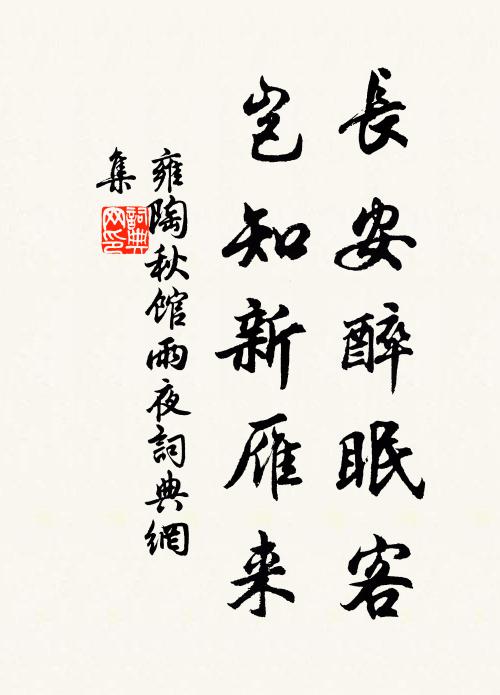 長安醉眠客
岂知新雁来
雍陶秋館雨夜詞典網
集
詞典
网印